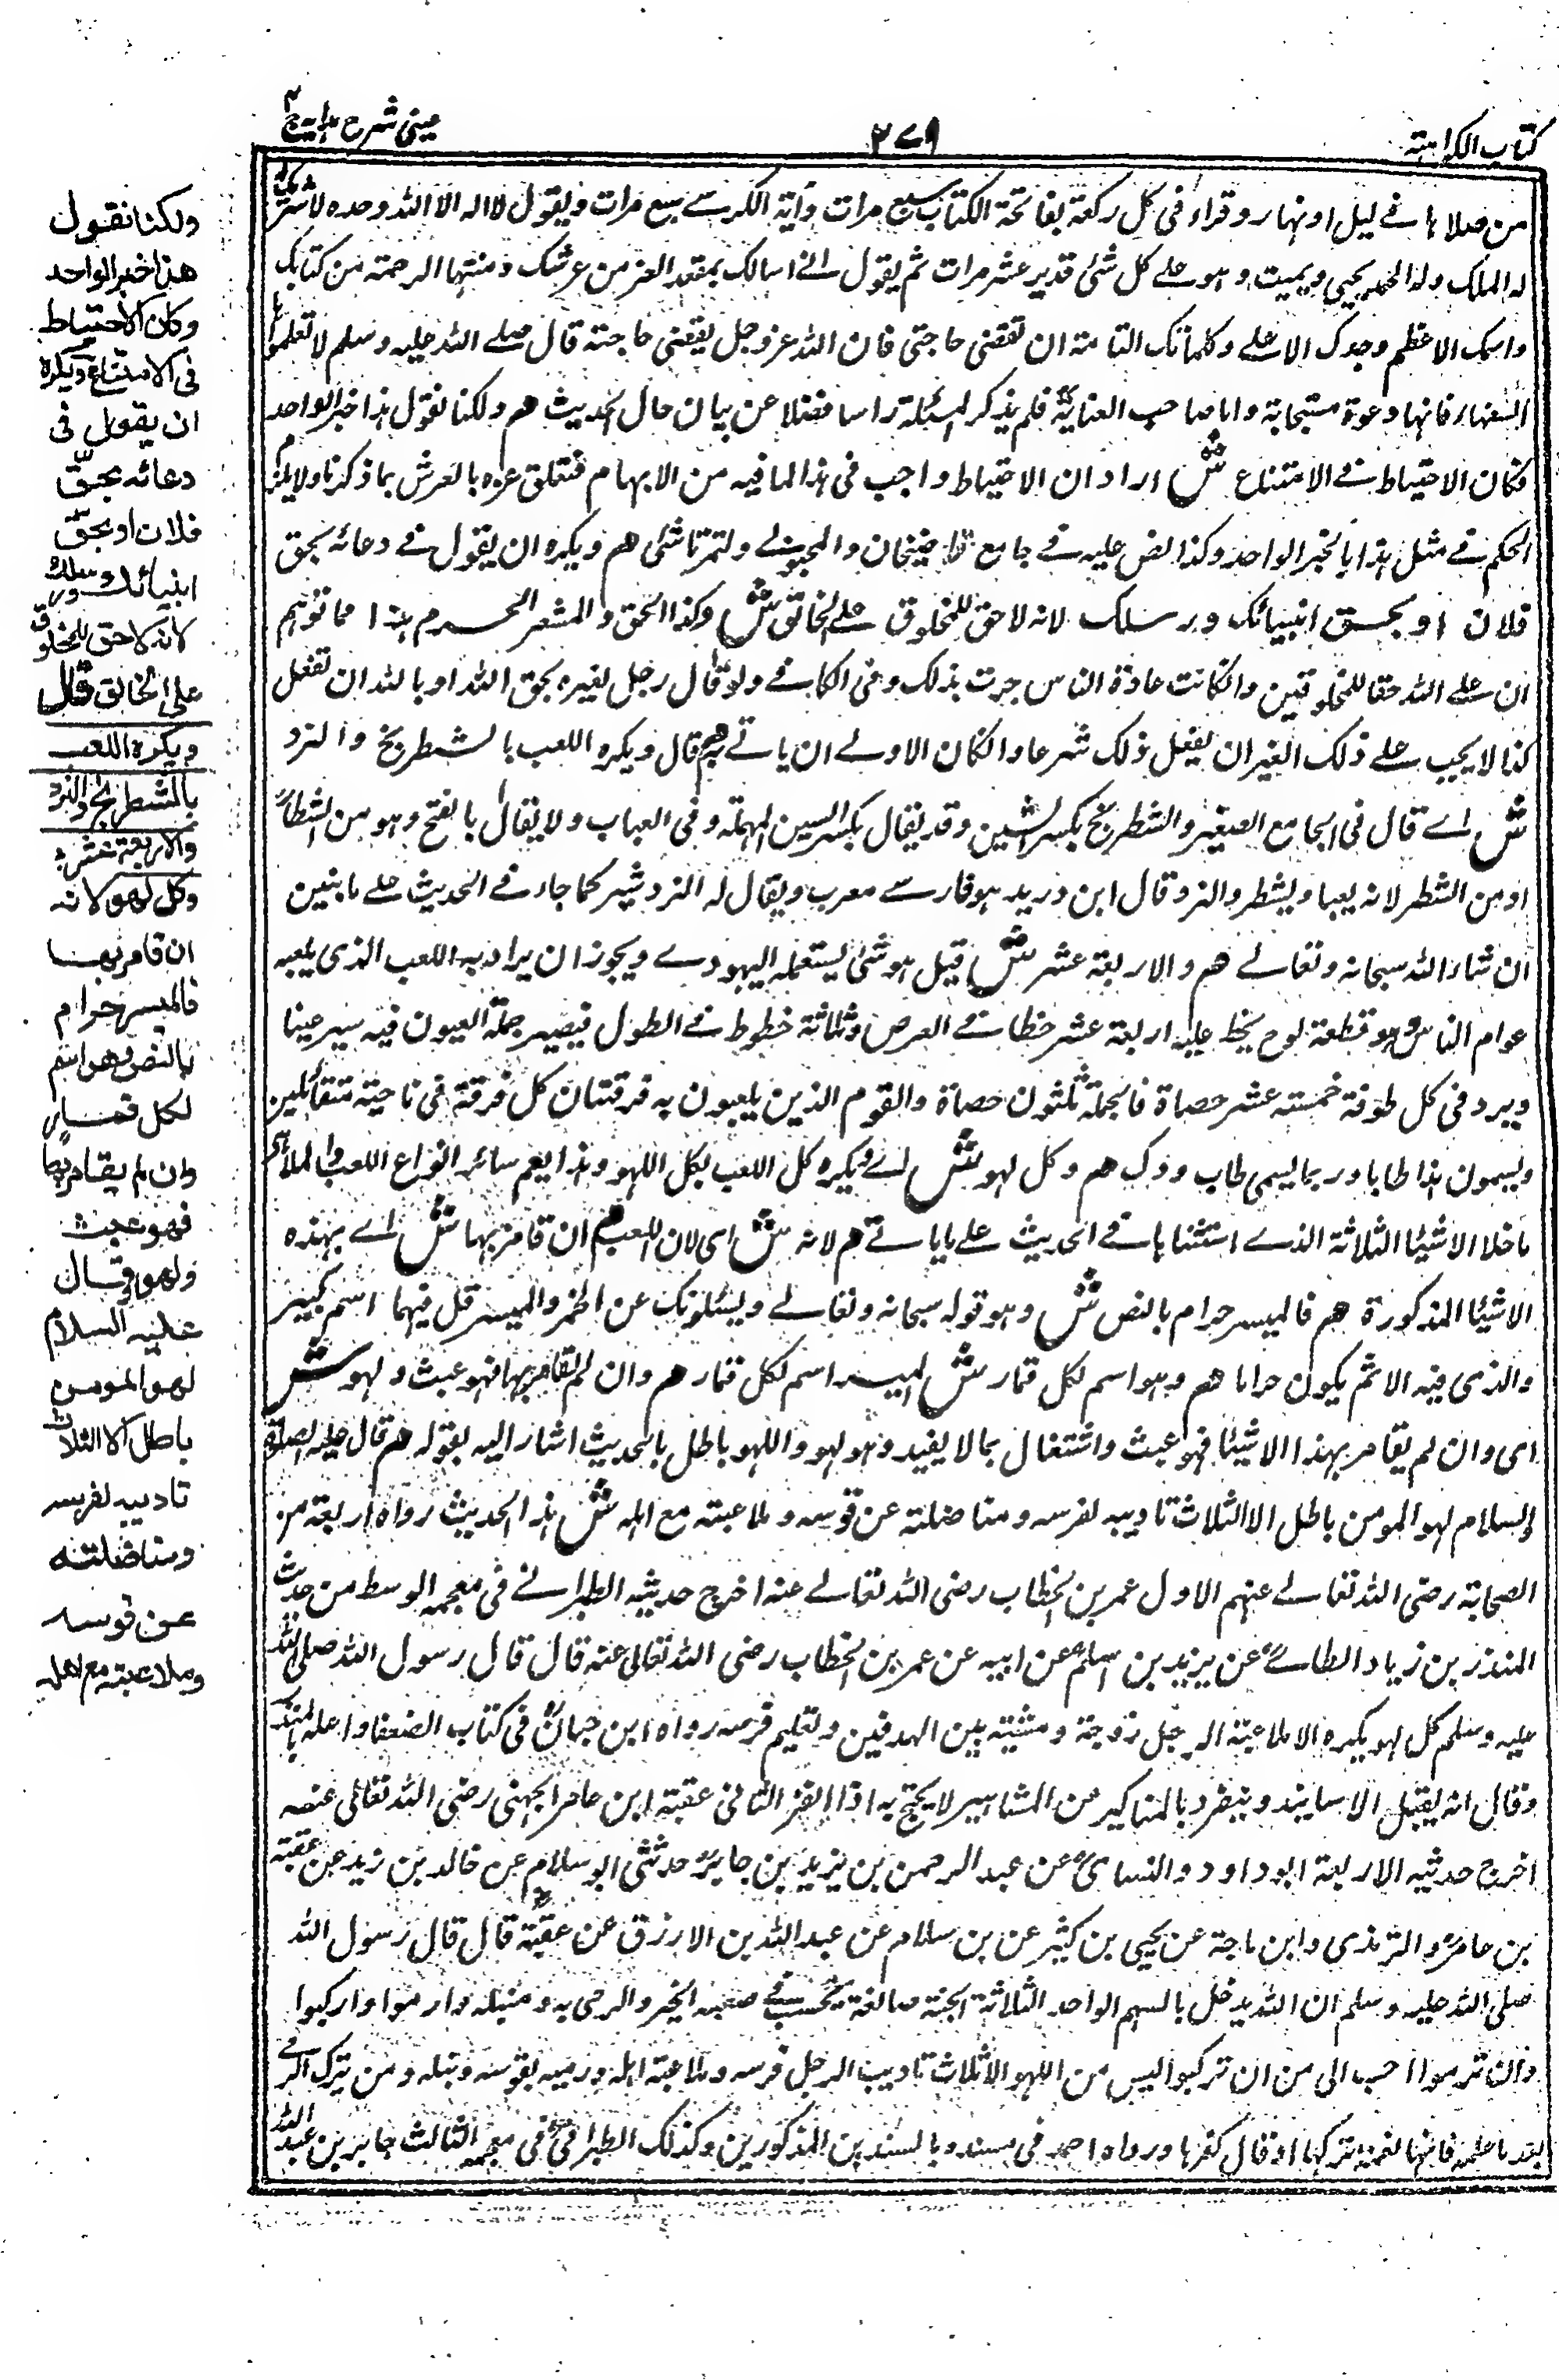 كتاب الكراهته
٢٧٩
عينی شرح هدايه ج ٤
من صلاها فے ليل او نهار وقراء فی كل ركعة بفاتحة الكتاب سبع مرات وآية الكرسے سبع مرات ويقول لا اله الا الله وحده لا شريك
له الملك وله الحمد يحيی ويميت وهو علے كل شئ قدير عشر مرات ثم يقول انے اسالك بمقعد العز من عرشك ومنتها الرحمة من كتابك
واسمك الاعظم وجدك الاعلے وكلماتك التامته ان تقضی حاجتی فان الله عز وجل يقضی حاجته قال صلے الله عليه وسلم لا تعلموها
السفهاء فانها دعوة مستجابة واما صاحب العناية فلم يذكر المسئلة راسا فضلا عن بيان حال الحديث هم ولكنا نقول هذا خبر الواحد
فكان الاحتياط فے الامتناع ش اراد ان الاحتياط واجب فی هذا لما فيه من الابهام فتعلق عزه بالعرش بما ذكرنا ولا يلزم
الحكم فے مثل هذا بالخبر الواحد وكذا نص عليه فے جامع قاضيخان والمحبوبے والتمرتاشی هم ويكره ان يقول فے دعائه بحق
فلان او بحق انبيائك ورسلك لانه لا حق للمخلوق علے الخالق ش وكذا الحق والمشعر الحرم هذا مما توهم
ان علے الله حقا للمخلوقين وانكانت عادة الناس جرت بذلك وفی الكافے ولو قال رجل لغيره بحق الله او بالله ان تفعل
كذا لا يجب علے ذلك الغير ان يفعل ذلك شرعا وانكان الاولے ان ياتے به هم قال ويكره اللعب بالشطريخ والنرد
ش اے قال فی الجامع الصغير والشطريخ بكسر الشين وقد يقال بكسر السين المهملة وفی العباب ولا يقال بالفتح وهو من الشطارة
او من الشطر لانه يعبا ويشطر والنرد قال ابن دريد هو فارسے معرب ويقال له النردشير كما جاء فے الحديث علے ما نبين
ان شاء الله سبحانه وتعالے هم والاربعة عشر ش قيل هو شئ يستعمله اليهودے ويجوز ان يراد به اللعب الذی يلعبه
عوام الناس وهو قطعة لوح يخط عليه اربعة عشر خطا فے العرض وثلاثة خطوط فے الطول فيصير جملة العيون فيه سير عينا
ويرد فی كل طرفة خمسته عشر حصاة فالجملة ثلثون حصاة والقوم الذين يلعبون به فرقتان كل فرقة فی ناحية متقابلين
ويسمون هذا طابا وربما يسمی طاب ودك هم وكل لهو ش اے ويكره كل اللعب بكل اللهو وهذا يعم سائر انواع اللعب والملاهی
ما خلا الاشيا الثلاثة الذے استثناها فے الحديث علے ما ياتے هم لانه ش ای لان اللعب هم ان قامر بها ش اے بهذه
الاشيا المذكورة هم فالميسر حرام بالنص ش وهو قوله سبحانه وتعالے ويسئلونك عن الخمر والميسر قل فيهما اسم كبير
والذی فيه الاثم يكون حراما هم وهو اسم لكل قمار ش الميسر اسم لكل قمار هم وان لم يقامر بها فهو عبث ولهو ش
ای وان لم يقامر بهذا الاشيا فهو عبث واشتغال بما لا يفيد وهو لهو واللهو باطل بالحديث اشار اليه بقوله هم قال عليه الصلوة
والسلام لهو المومن باطل الا الثلاث تاديبه لفرسه ومناضلته عن قوسه وملاعبته مع اهله ش هذا الحديث رواه اربعة من
الصحابة رضی الله تعالے عنهم الاول عمر بن الخطاب رضی الله تعالے عنه اخرج حديثه الطبرانے فی معجمه الوسط من حديث
المنذر بن زياد الطائے عن يزيد بن اسلم عن ابيه عن عمر بن الخطاب رضی الله تعالی عنه قال قال رسول الله صلی الله
عليه وسلم كل لهو يكره الا ملاعبة الرجل زوجة ومشيته بين الهدفين وتعليم فرسه رواه ابن حبان فی كتاب الضعفا واعله بالمنذر
وقال انه يقبل الاسانيد وينفرد بالمناكير من المشاهير لا يحتج به اذا انفرد الثانی عقبة ابن عامر الجهنی رضی الله تعالی عنه
اخرج حديثه الاربعة ابو داود والنسائی عن عبد الرحمن بن يزيد بن جابر حدثنی ابو سلام عن خالد بن زيد عن عقبة
بن عامر والترمذی وابن ماجة عن يحيی بن كثير عن بن سلام عن عبد الله بن الارزق عن عقبة قال قال رسول الله
صلی الله عليه وسلم ان الله يدخل بالسهم الواحد الثلاثة الجنة صانعه يحتسب فے صنعه الخير والرمی به ومنبله وارموا واركبوا
وان ترموا احب الی من ان تركبوا ليس من اللهو الا ثلاث تاديب الرجل فرسه وملاعبة اهله ورميه بقوسه ونبله ومن ترك الرمے
بعد ما علمه فانها نعمة تركها او قال كفرها ورواه احمد فی مسنده بالسندين المذكورين وكذلك الطبرانی فی معجمه الثالث جابر بن عبد الله
ولكنا نقول
هذا خبر الواحد
وكان الاحتياط
فی الامتناع ويكره
ان يقول فی
دعائه بحق
فلان او بحق
انبيائك ورسلك
لانه لا حق للمخلوق
علی الخالق قال
ويكره اللعب
بالشطرنج والنرد
والاربعة عشر
وكل لهو لانه
ان قامر بها
فالميسر حرام
بالنص وهو اسم
لكل قمار
وان لم يقامر بها
فهو عبث
ولهو وقال
عليه السلام
لهو المومن
باطل الا الثلاث
تاديبه لفرسه
ومناضلته
عن قوسه
وملاعبته مع اهله